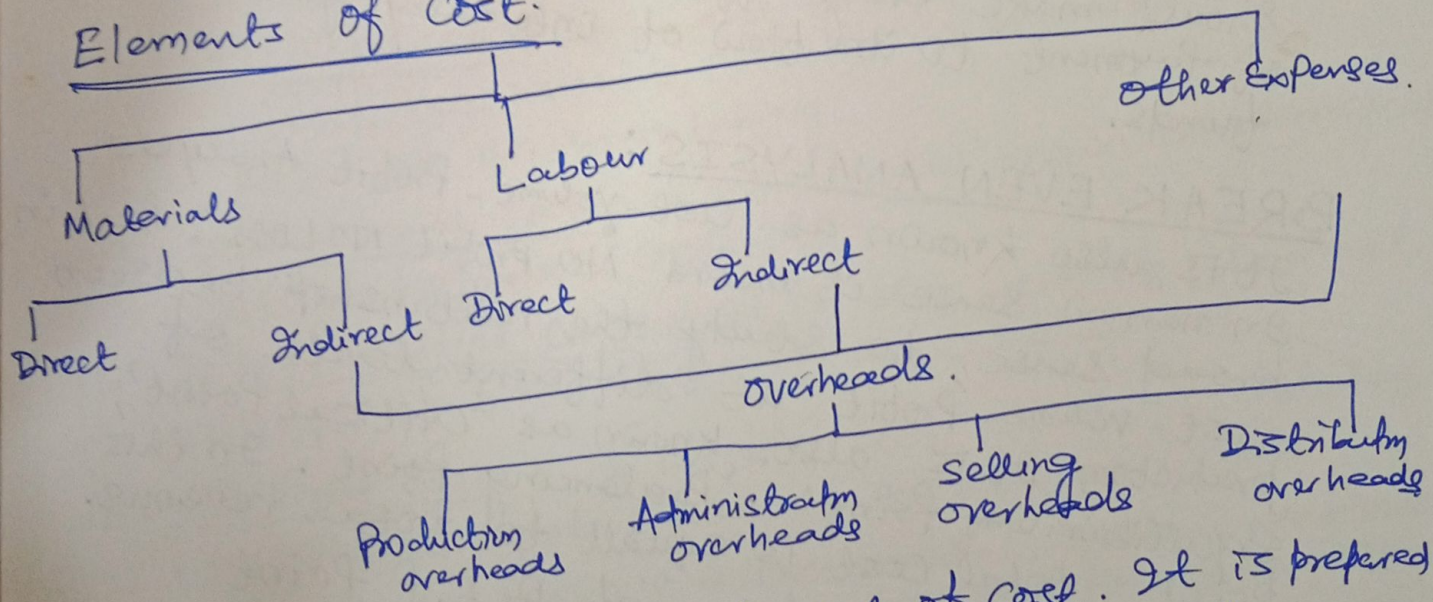 Elements of Cost.
Other Expenses.
Labour
Materials
Direct
Indirect
Direct
Indirect
overheads.
Production
overheads
Administratn
overheads
Selling
overheads
Distributn
overheads
of cost. It is prepared